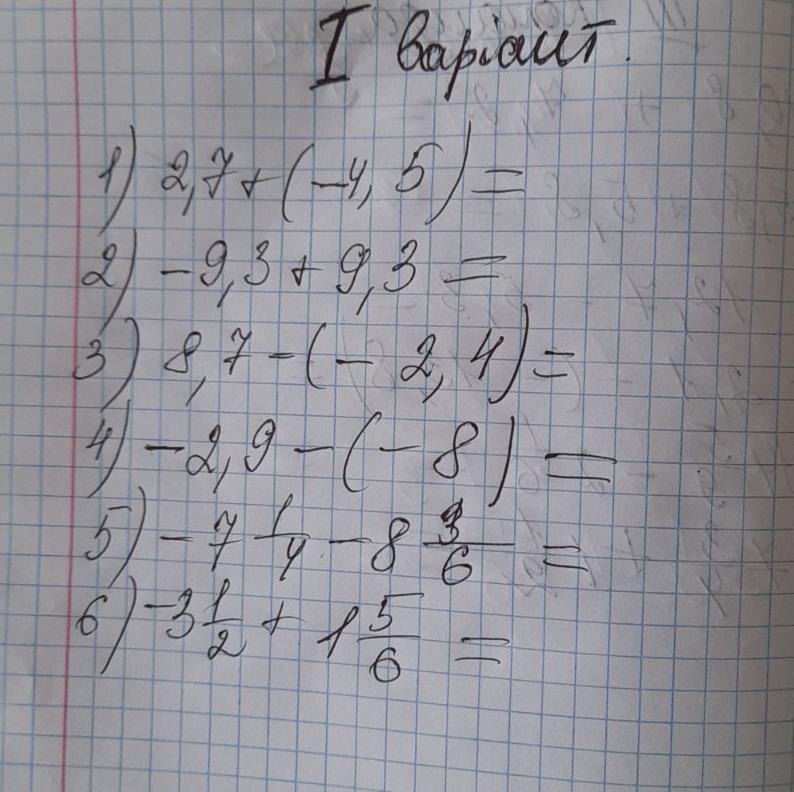 I варіант.
1) 2,7 + (-4, 5) =
2) - 9,3 + 9,3 =
3) 8,7 - (- 2, 4) =
4) - 2,9 - (- 8) =
5) - 7 1/4 - 8 3/6 =
6) -3 1/2 + 1 5/6 =